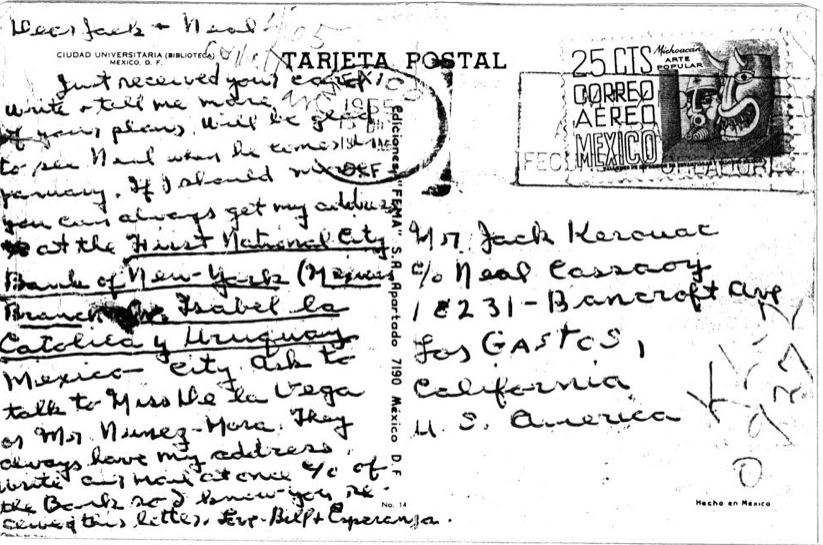 Dear Jack + Neal
CIUDAD UNIVERSITARIA (BIBLIOTECA)
MEXICO, D. F.
TARJETA POSTAL
Just received your card
write + tell me more
of your plans. Will be glad
to see Neal when he comes in
January. If I should move
you can always get my address
at the First National City
Bank of New-York (Mexico
Branch Isabel la
Catolica y Uruguay
Mexico - City Ask to
talk to Miss de la Vega
or Mr. Nunez-Mora. They
always have my address.
write air mail at once c/o of
the Bank so I know you re-
ceived this letter. Love-Bill + Esperanza.
ediciones "FEMA" S.A. Apartado 7190 México D.F
No. 14
25 CTS
Michoacán
ARTE
POPULAR
CORREO
AÉREO
MEXICO
1955
Mr. Jack Kerouac
c/o Neal Cassady
18231-Bancroft Ave
Los GAStOS,
California
U. S. America
Hecho en Mexico